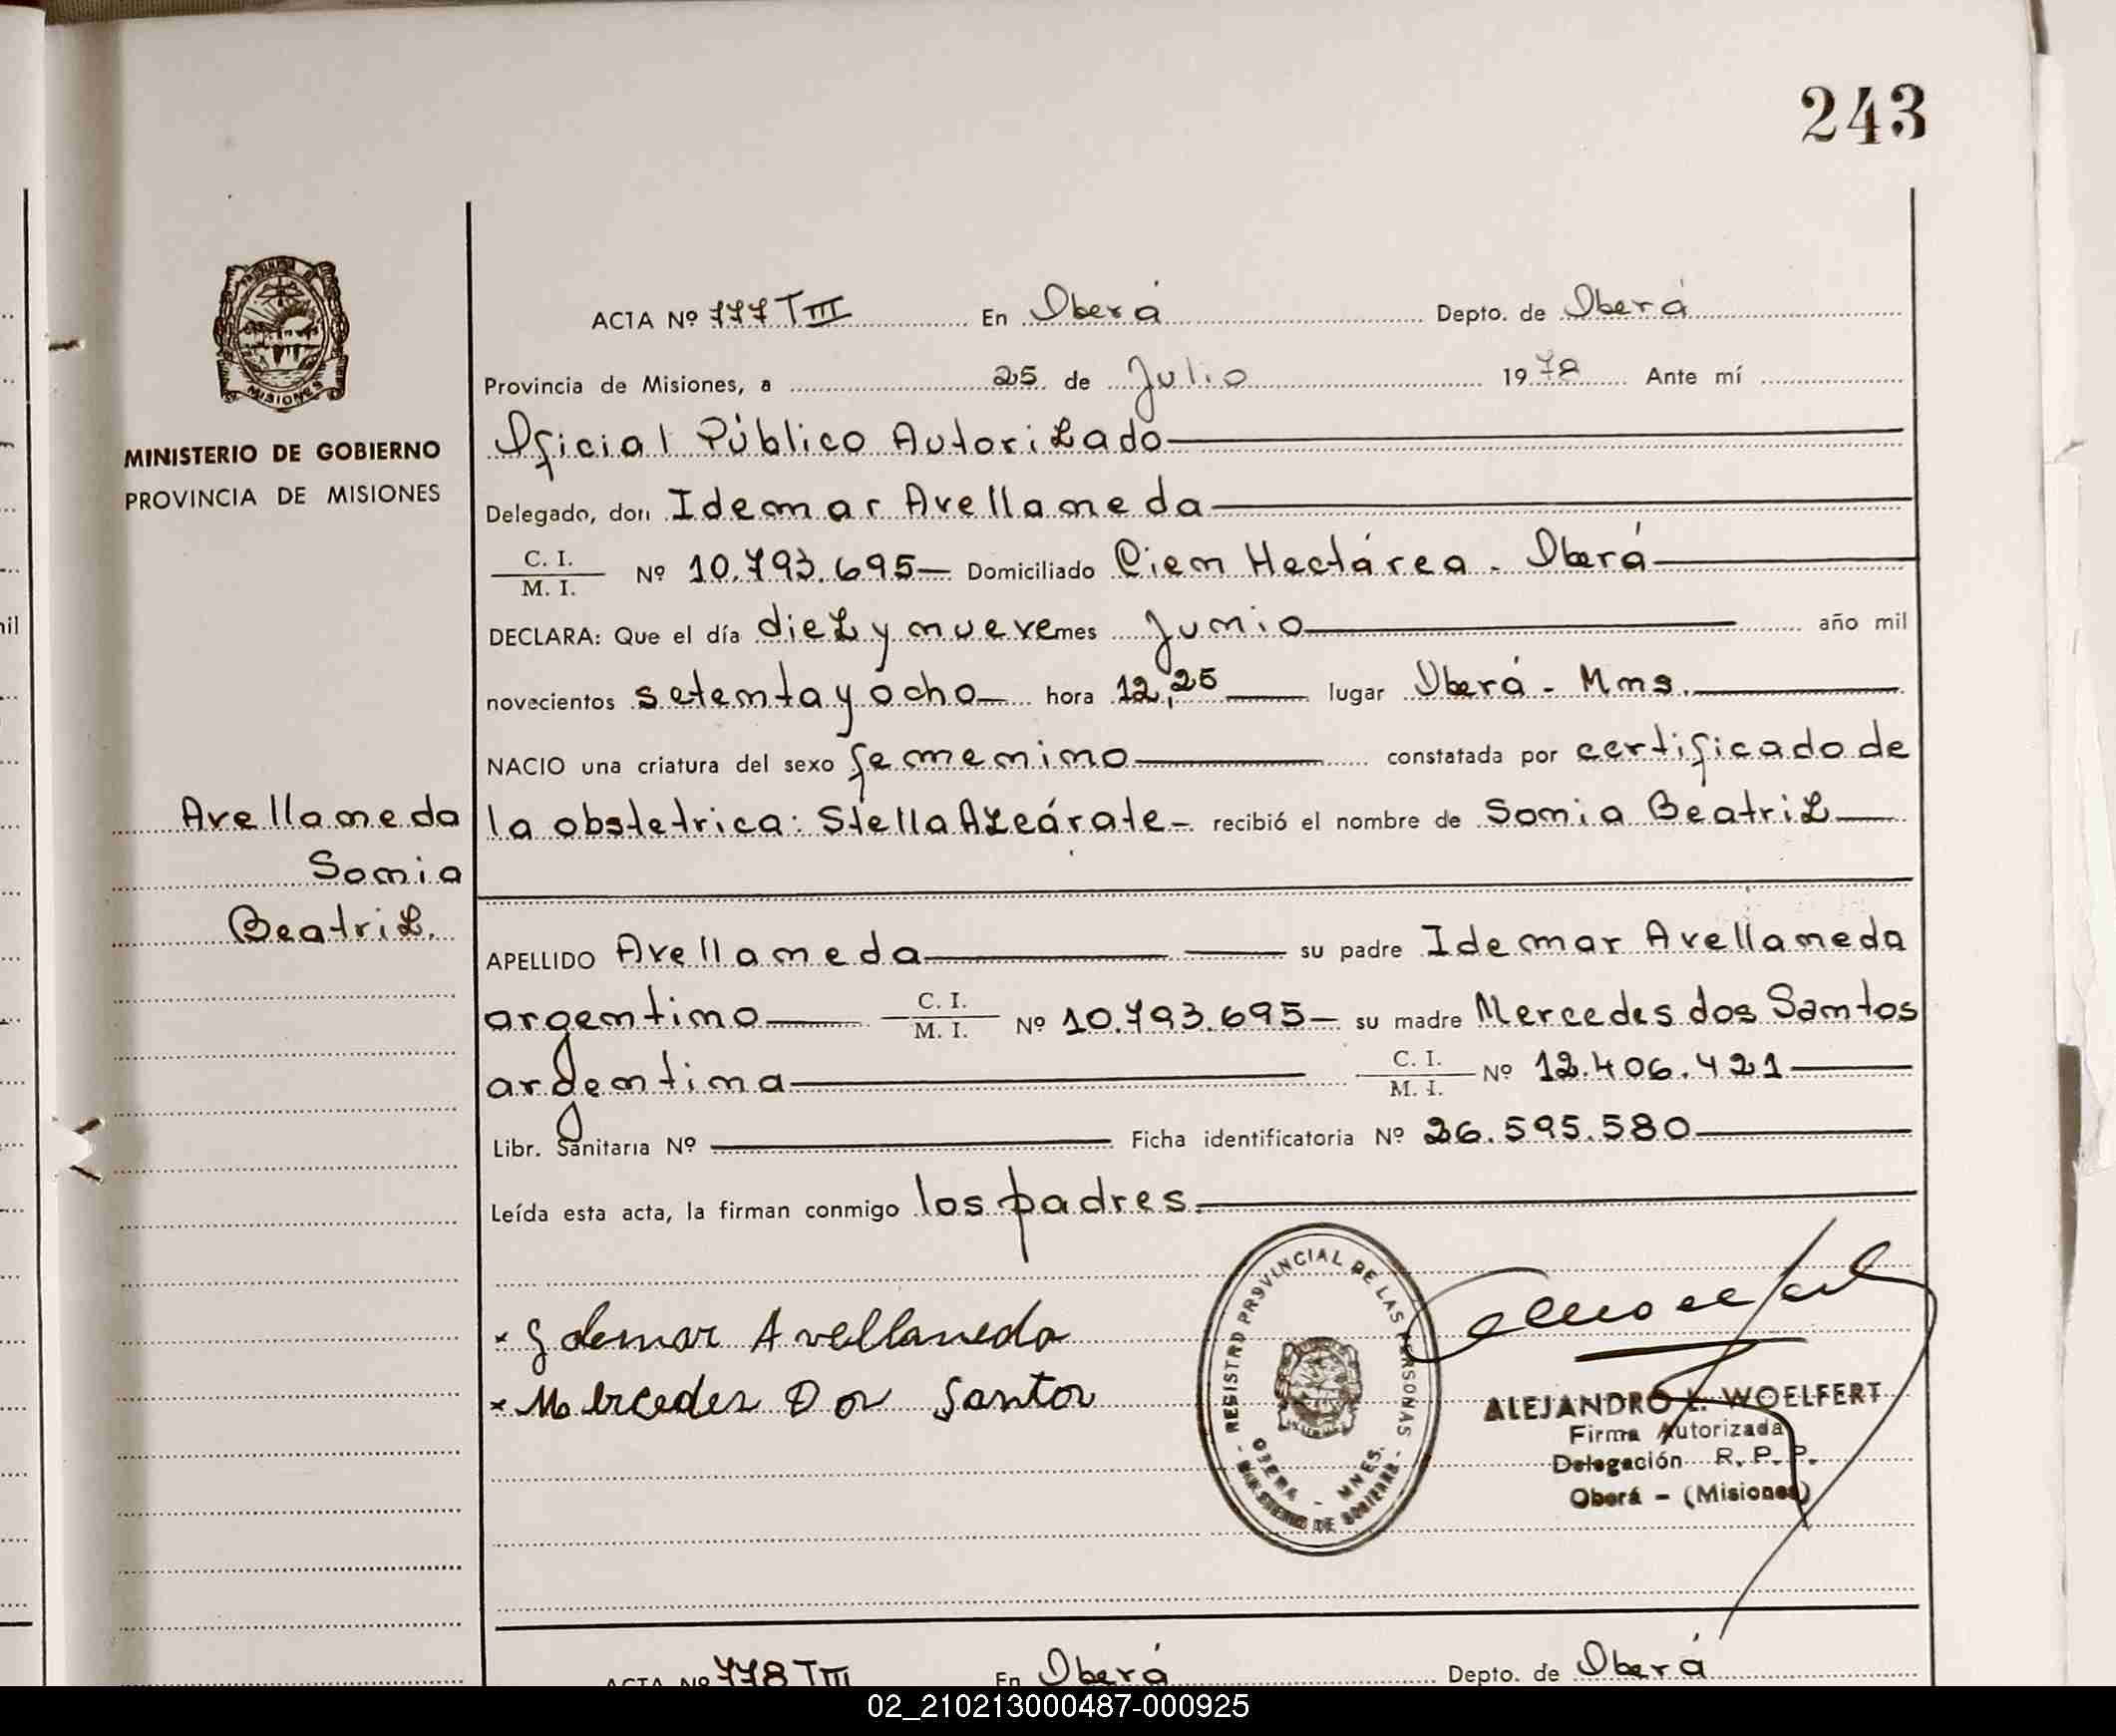 243
ACTA Nº 777 T III En Oberá Depto. de Oberá
Provincia de Misiones, a 25 de Julio 1978 Ante mí
Oficial Público Autorizado
MINISTERIO DE GOBIERNO
PROVINCIA DE MISIONES
Delegado, don Idemar Avellaneda
C. I.
M. I. Nº 10.793.695 Domiciliado Cien Hectárea - Oberá
DECLARA: Que el día diez y nueve mes Junio año mil
novecientos setenta y ocho hora 12,25 lugar Oberá - Mnes.
NACIO una criatura del sexo femenino constatada por certificado de
la obstetrica: Stella Azcárate - recibió el nombre de Sonia Beatriz
Avellaneda
Sonia
Beatriz.
APELLIDO Avellaneda su padre Idemar Avellaneda
argentino C. I. M. I. Nº 10.793.695 su madre Mercedes dos Santos
argentina C. I. M. I. Nº 12.406.421
Libr. Sanitaria Nº Ficha identificatoria Nº 26.595.580
Leída esta acta, la firman conmigo los padres.
x Idemar Avellaneda
x Mercedes Dos Santos
REGISTRO PROVINCIAL DE LAS PERSONAS
OBERA - MNES.
MINISTERIO DE GOBIERNO
MISIONES
ALEJANDRO L. WOELFERT
Firma Autorizada
Delegación R. P. P.
Oberá - (Misiones)
ACTA Nº 778 T III En Oberá Depto. de Oberá
02_210213000487-000925